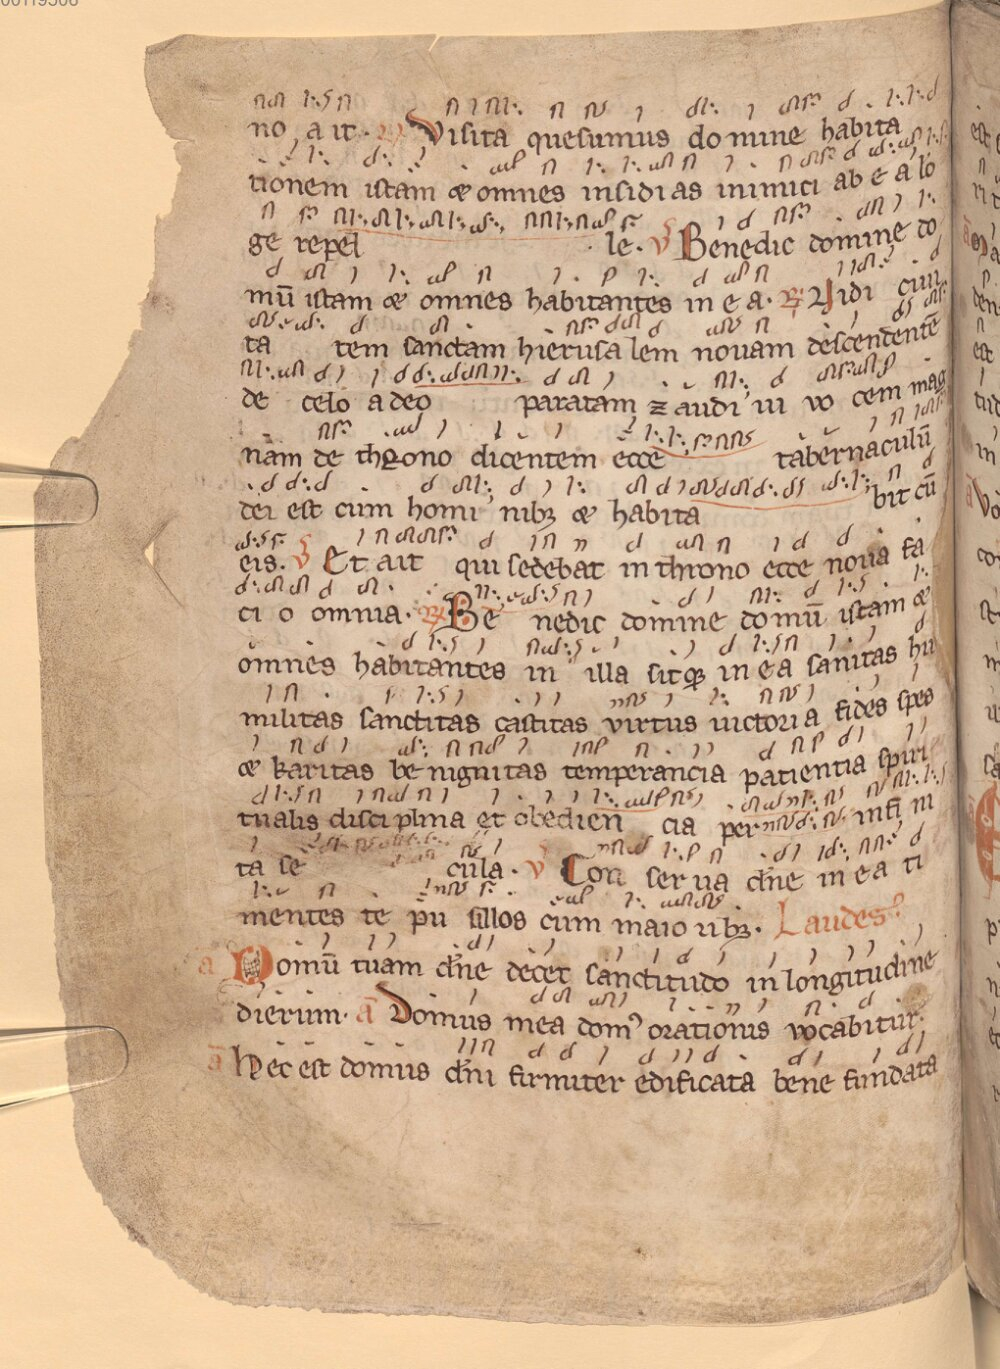 no a it. R Visita quesumus domine habita
tionem istam & omnes insidias inimici ab e a lo
ge repel le. V Benedic domine do
mū istam & omnes habitantes in e a. R Uidi ciui
ta tem sanctam hierusalem nouam descendentē
de celo a deo paratam & audiui uo cem mag
nam de throno dicentem ecce tabernaculū
dei est cum homi nibꝫ & habita bit cū
eis. V Et ait qui sedebat in throno ecce noua fa
ci o omnia. R Be nedic domine domū istam &
omnes habitantes in illa sitqꝫ in e a sanitas hu
militas sanctitas castitas virtus uictoria fides spes
& karitas benignitas temperancia patientia spiri
tualis disciplina et obedien cia per infi ni
ta se cula. V Con serua dn̄e in e a ti
mentes te pu sillos cum maioribꝫ. Laudes
a Domū tuam dn̄e decet sanctitudo in longitudine
dierum. ā Domus mea domꝰ orationis vocabitur.
ā Hec est domus dn̄i firmiter edificata bene fundata